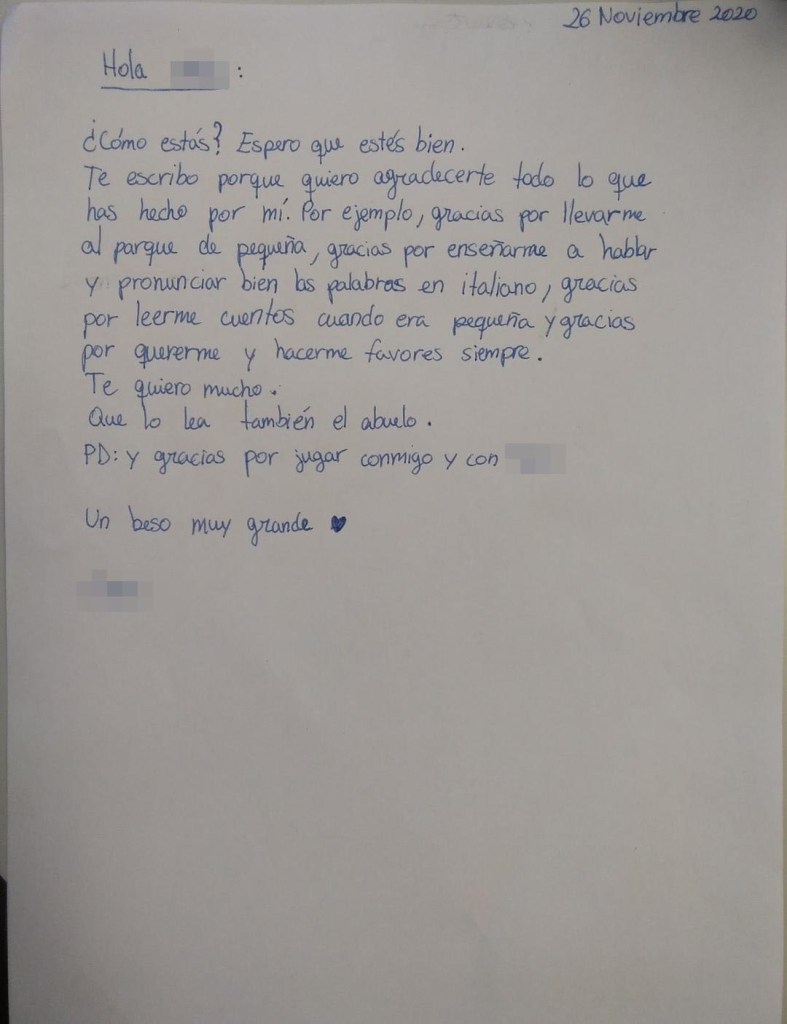 26 Noviembre 2020
Hola :
¿Cómo estás? Espero que estés bien.
Te escribo porque quiero agradecerte todo lo que
has hecho por mí. Por ejemplo, gracias por llevarme
al parque de pequeña, gracias por enseñarme a hablar
y pronunciar bien las palabras en italiano, gracias
por leerme cuentos cuando era pequeña y gracias
por quererme y hacerme favores siempre.
Te quiero mucho.
Que lo lea también el abuelo.
PD: y gracias por jugar conmigo y con
Un beso muy grande ♥